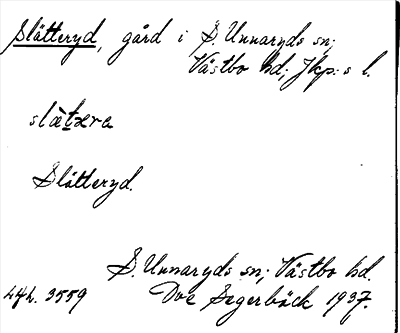 Slätteryd, gård i S. Unnaryds sn;
Västbo hd; Jkp:s l.
slätæra
Slätteryd.
S. Unnaryds sn; Västbo hd.
44h. 3559 Segerbäck 1937.